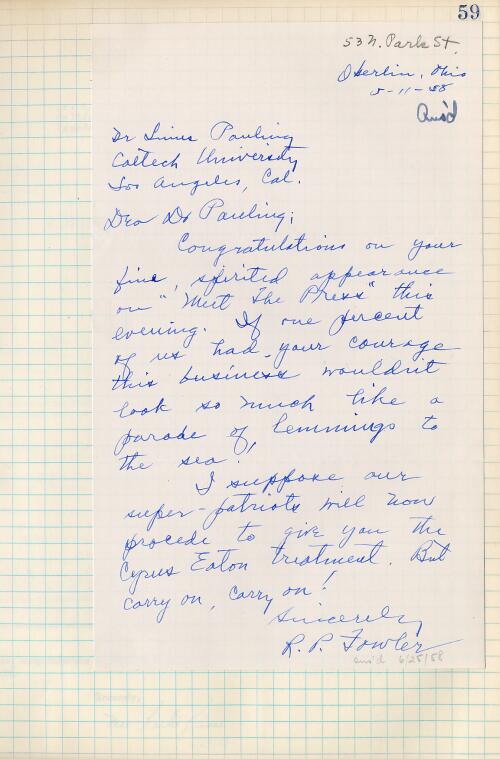 59
53 N. Park St.
Oberlin, Ohio
5-11-58
Ans'd
Dr Linus Pauling
Caltech University
Los Angeles, Cal.
Dea Dr Pauling;
Congratulations on your
fine, spirited appearance
on "Meet The Press" this
evening. If one percent
of us had your courage
this business wouldn't
look so much like a
parade of lemmings to
the sea!
I suppose our
super-patriots will now
procede to give you the
Cyrus Eaton treatment. But
carry on, carry on!
Sincerely
R. P. Fowler
ans'd 6/25/58